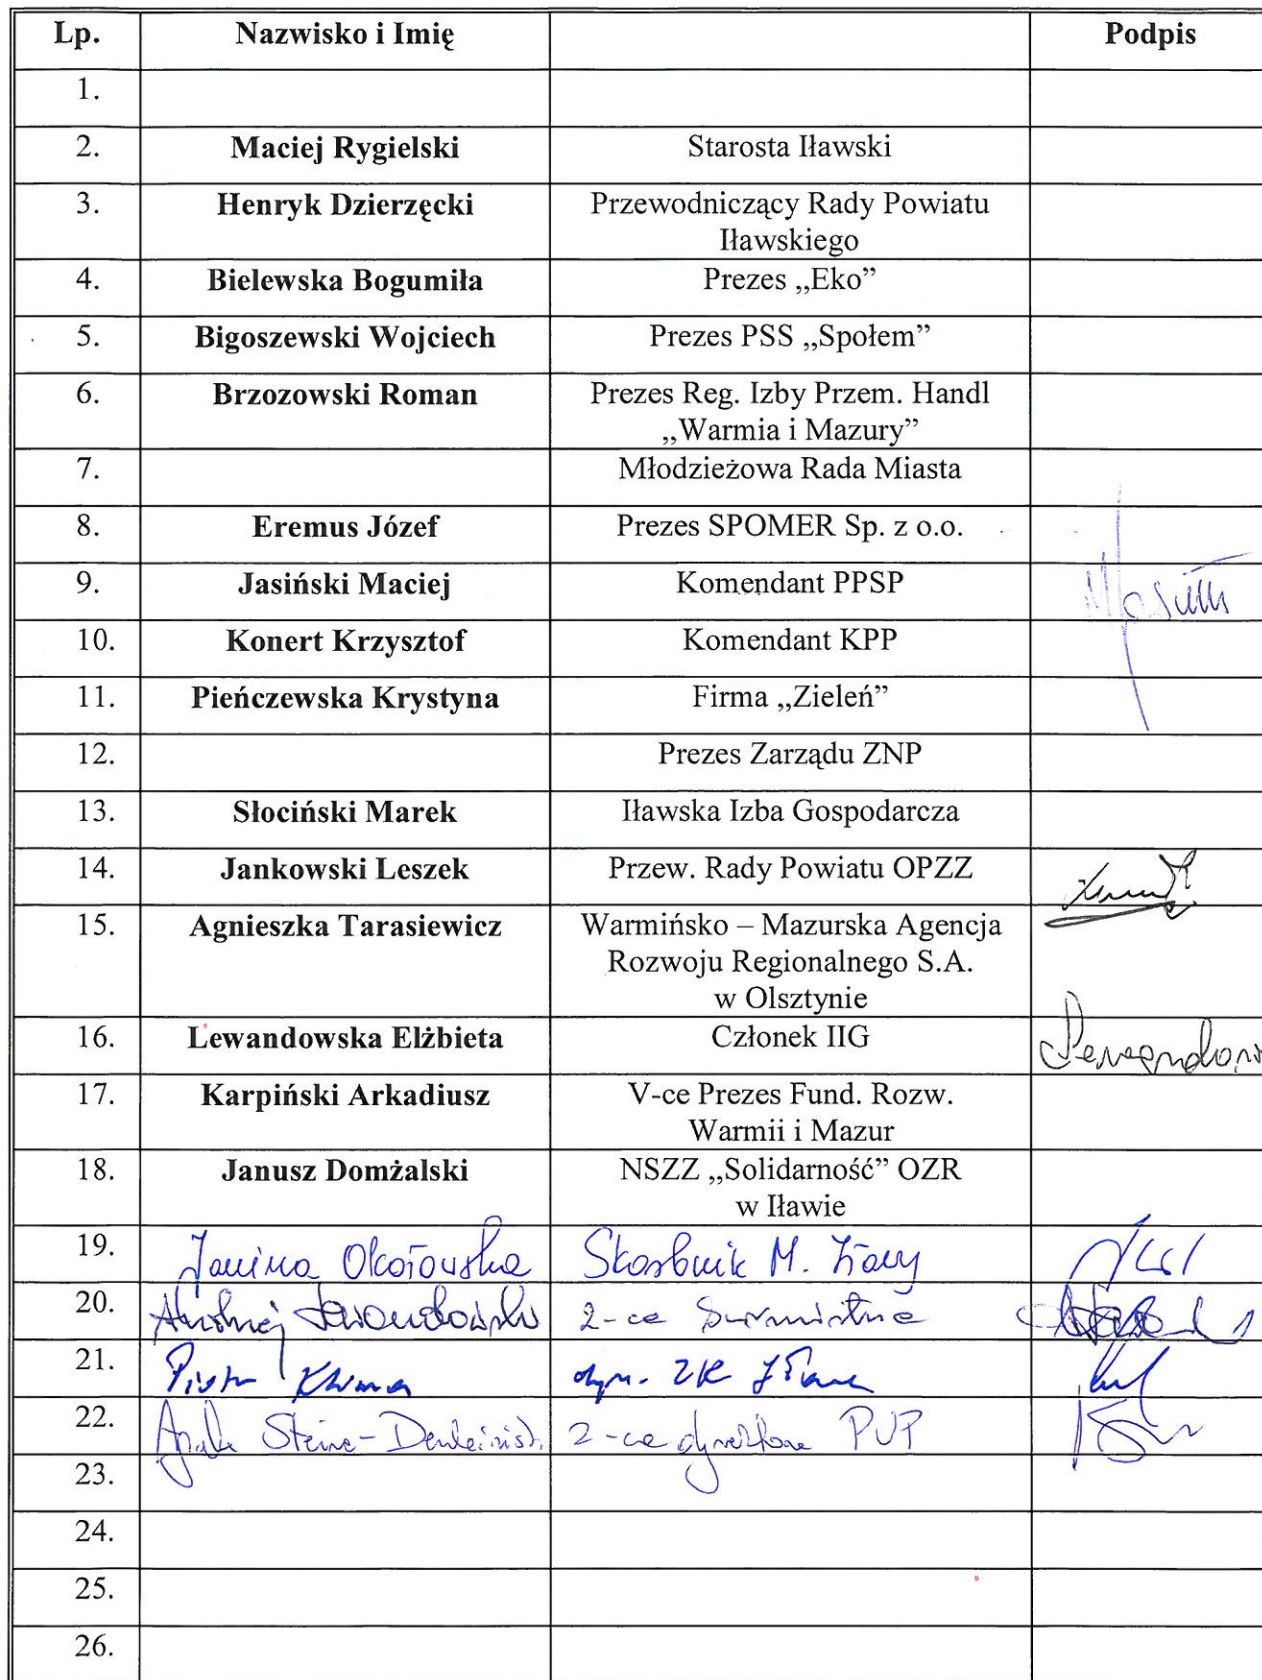 Lp. Nazwisko i Imię Podpis
1.
2. Maciej Rygielski Starosta Iławski
3. Henryk Dzierzęcki Przewodniczący Rady Powiatu
Iławskiego
4. Bielewska Bogumiła Prezes „Eko”
5. Bigoszewski Wojciech Prezes PSS „Społem”
6. Brzozowski Roman Prezes Reg. Izby Przem. Handl
„Warmia i Mazury”
7. Młodzieżowa Rada Miasta
8. Eremus Józef Prezes SPOMER Sp. z o.o.
9. Jasiński Maciej Komendant PPSP
10. Konert Krzysztof Komendant KPP
11. Pieńczewska Krystyna Firma „Zieleń”
12. Prezes Zarządu ZNP
13. Słociński Marek Iławska Izba Gospodarcza
14. Jankowski Leszek Przew. Rady Powiatu OPZZ
15. Agnieszka Tarasiewicz Warmińsko – Mazurska Agencja
Rozwoju Regionalnego S.A.
w Olsztynie
16. Lewandowska Elżbieta Członek IIG
17. Karpiński Arkadiusz V-ce Prezes Fund. Rozw.
Warmii i Mazur
18. Janusz Domżalski NSZZ „Solidarność” OZR
w Iławie
19. Janina Okołowska Skarbnik M. Iławy
20. Andrzej Lewandowski 2-ce burmistrza
21. Piotr dyr. ZK Iława
22. 2-ce dyrektora PUP
23.
24.
25.
26.